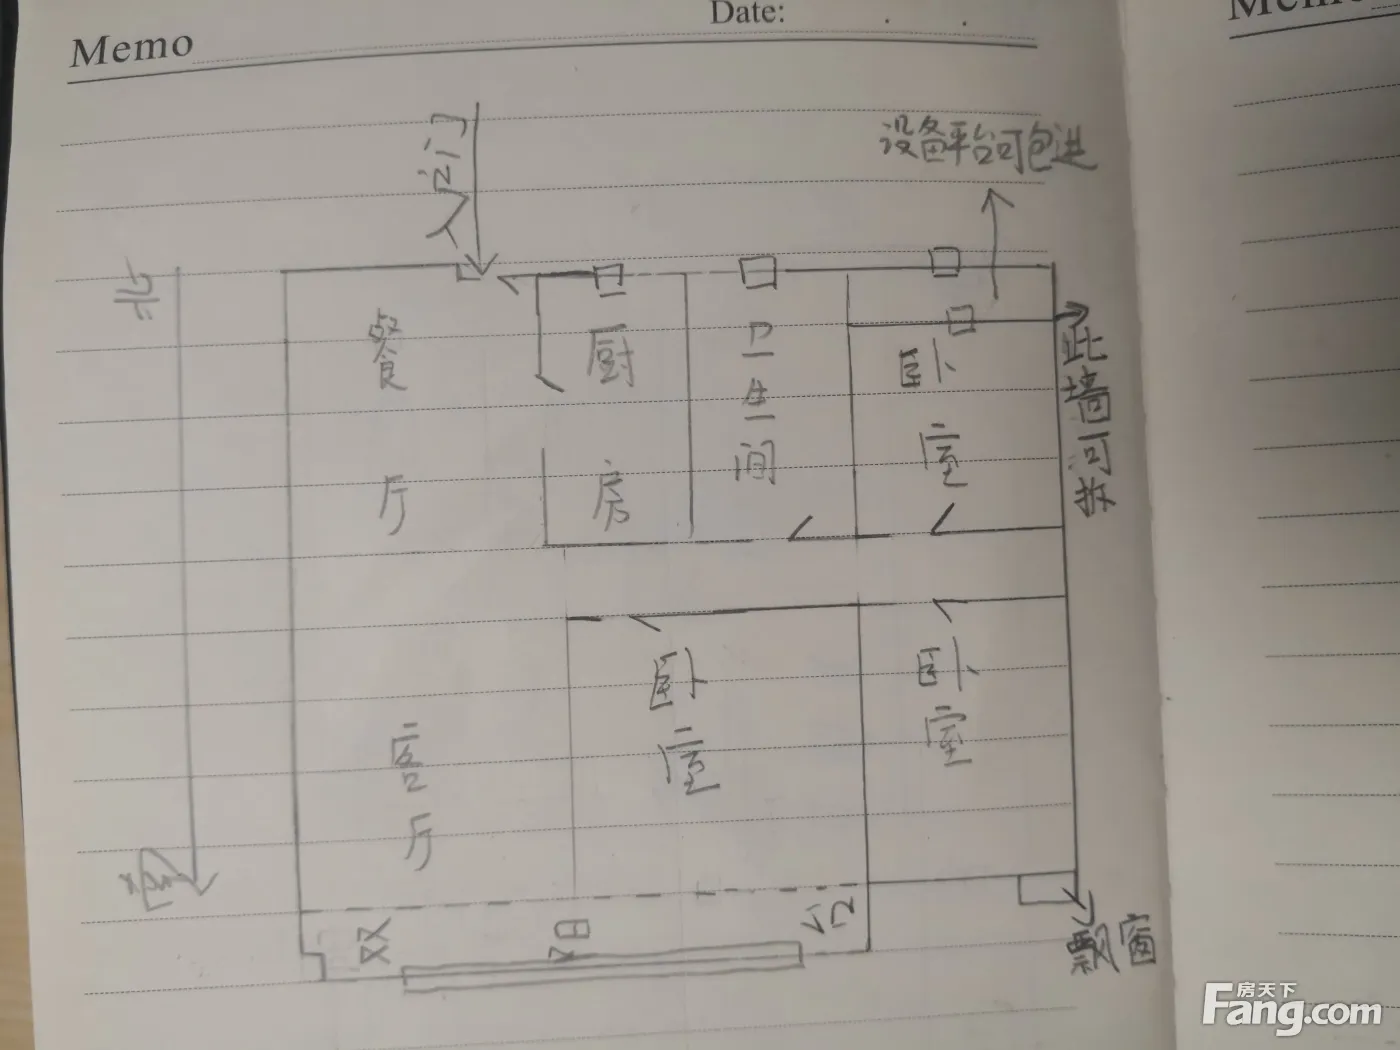 Memo
Date:
Memo
入户门
设备平台可包进
北
餐厅
厨房
卫生间
卧室
此墙可拆
客厅
卧室
卧室
南
双阳台
飘窗
房天下
Fang.com